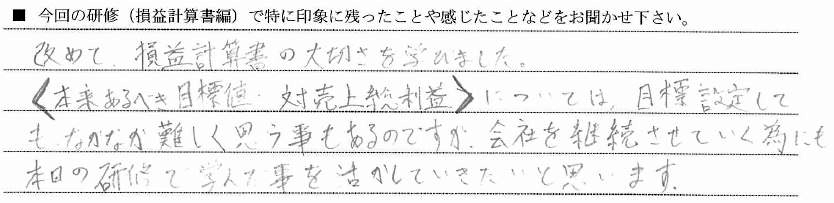 ■ 今回の研修（損益計算書編）で特に印象に残ったことや感じたことなどをお聞かせ下さい。
改めて、損益計算書の大切さを学びました。
《本来あるべき目標値・対売上総利益》については、目標設定して
も、なかなか難しく思う事もあるのですが、会社を継続させていく為にも
本日の研修で学んだ事を活かしていきたいと思います。